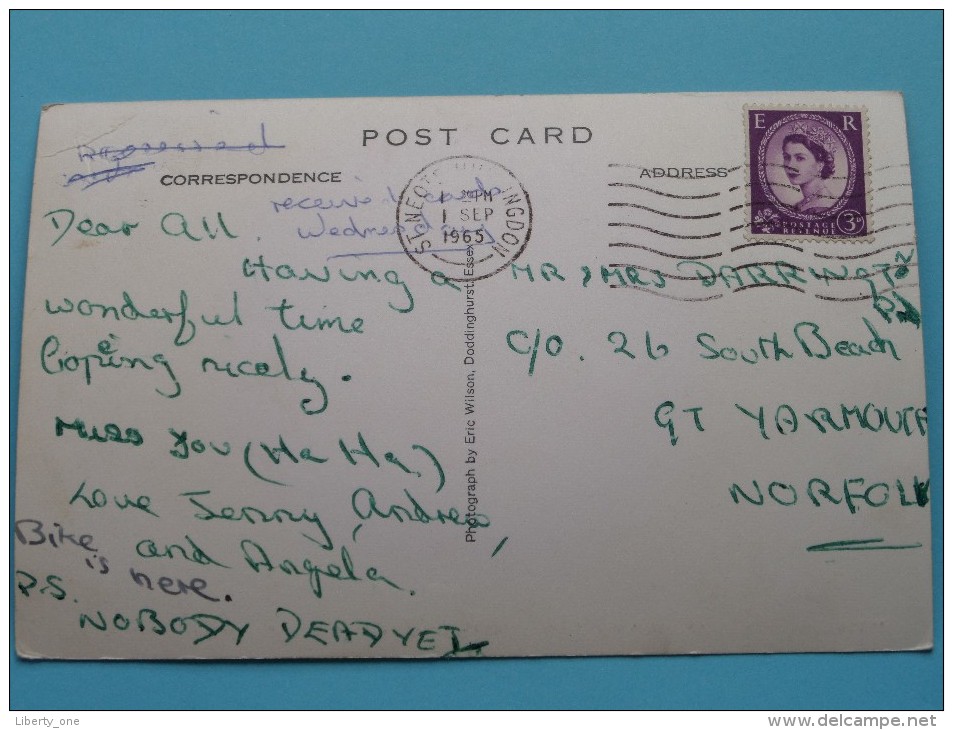 POST CARD
CORRESPONDENCE
ADDRESS
received cards
Wednesday
ST. NEOTS HUNTINGDON
PM
1 SEP
1965
E R
POSTAGE
REVENUE
3D
Dear All.
Having a
wonderful time
Copeing nicely.
Miss you (Ha Ha)
Love Jenny, Andrew,
and Angela.
Bike
is here.
P.S.
NOBODY DEAD YET
Photograph by Eric Wilson, Doddinghurst, Essex
MR & MRS DARRINGTON
C/O. 26 South Beach
GT YARMOUTH
NORFOLK
Liberty_one